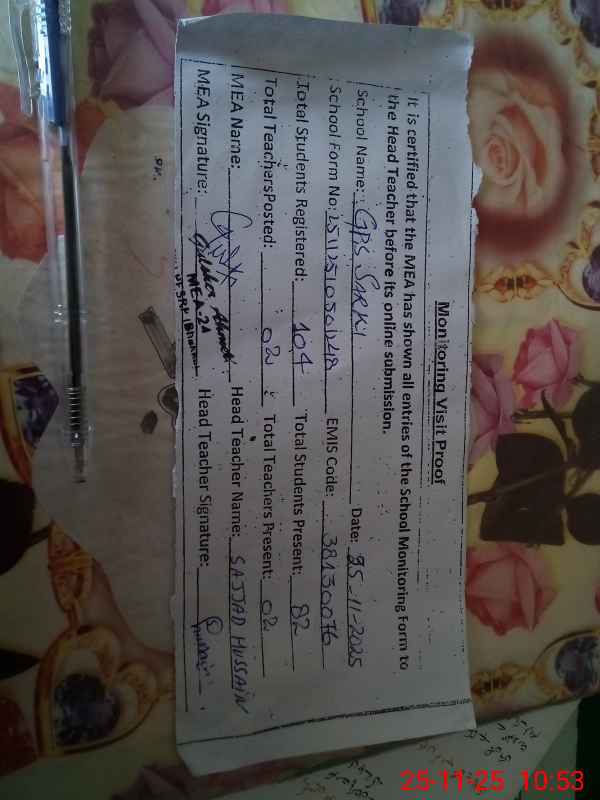 Monitoring Visit Proof
It is certified that the MEA has shown all entries of the School Monitoring Form to
the Head Teacher before its online submission.
School Name: GPS SARKI Date: 25-11-2025
School Form No: EMIS Code: 38130076
Total Students Registered: 104 Total Students Present: 82
Total TeachersPosted: 02 Total Teachers Present: 02
MEA Name: Head Teacher Name: SAJJAD HUSSAIN
MEA Signature: Head Teacher Signature:
MEA-21
25-11-25 10:53